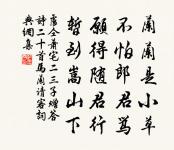 蘭蘭是小草
不怕郎君罵
願得隨君行
暫到嵩山下
盧仝蕭宅二三子贈答
詩二十首馬蘭請客詞
典網集